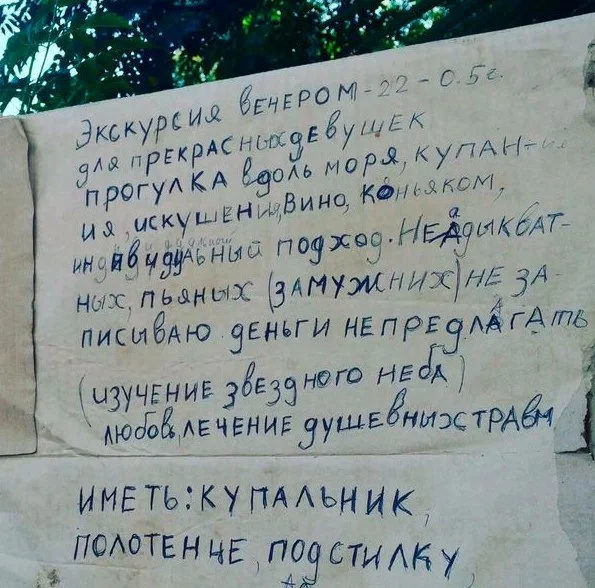 Экскурсия венером - 22 - 0.5г.
для прекрасных девушек
прогулка вдоль моря, купан-
ия, искушения, вино, коньяком,
индивидуальный подход. Неадыкват-
ных, пьяных (замужних) не за-
писываю деньги не предлагать
(изучение звездного неба)
любовь, лечение душевных травм
иметь: купальник,
полотенце, подстилку,